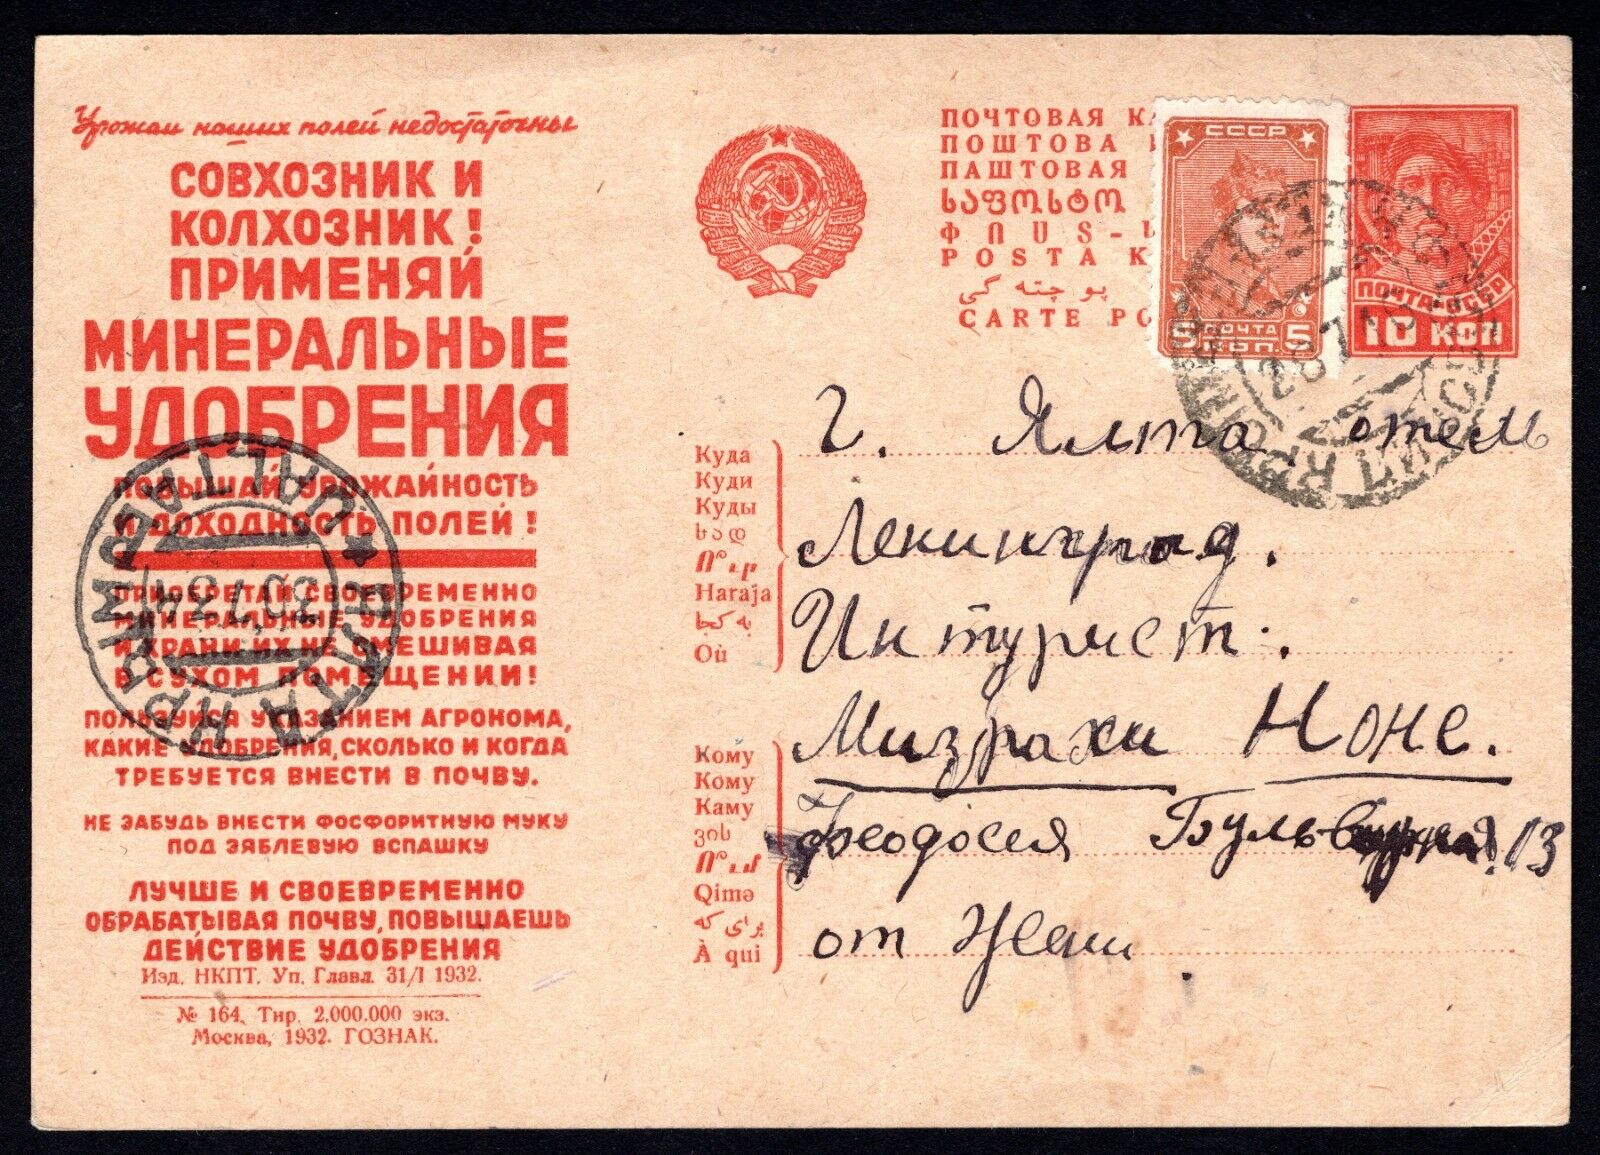 Урожаи наших полей недостаточны
СОВХОЗНИК И
КОЛХОЗНИК!
ПРИМЕНЯЙ
МИНЕРАЛЬНЫЕ
УДОБРЕНИЯ
ПОВЫШАЙ УРОЖАЙНОСТЬ
И ДОХОДНОСТЬ ПОЛЕЙ!
ПРИОБРЕТАЙ СВОЕВРЕМЕННО
МИНЕРАЛЬНЫЕ УДОБРЕНИЯ
И ХРАНИ ИХ НЕ СМЕШИВАЯ
В СУХОМ ПОМЕЩЕНИИ!
ПОЛЬЗУЙСЯ УКАЗАНИЕМ АГРОНОМА,
КАКИЕ УДОБРЕНИЯ, СКОЛЬКО И КОГДА
ТРЕБУЕТСЯ ВНЕСТИ В ПОЧВУ.
НЕ ЗАБУДЬ ВНЕСТИ ФОСФОРИТНУЮ МУКУ
ПОД ЗЯБЛЕВУЮ ВСПАШКУ
ЛУЧШЕ И СВОЕВРЕМЕННО
ОБРАБАТЫВАЯ ПОЧВУ, ПОВЫШАЕШЬ
ДЕЙСТВИЕ УДОБРЕНИЯ
Изд. НКПТ. Уп. Главл. 31/I 1932.
№ 164. Тир. 2.000.000 экз.
Москва, 1932. ГОЗНАК.
ЯЛТА КРЫМ
JALTA
30 7 34
ПОЧТОВАЯ КА
ПОШТОВА
ПАШТОВАЯ
ՓՈՍ
POSTA K
پوچته گی
CARTE PO
СССР
5 ПОЧТА 5
КОП.
ПОЧТА СССР
10 КОП
28 7
Куда
Куди
Куды
სად
Haraja
به کجا
Où
Кому
Кому
Каму
ვის
Qimə
برای که
À qui
г. Ялта. отель
Ленинград.
Интурист.
МизрахиНоне.
Феодосея Бульварная. 13
от Жени